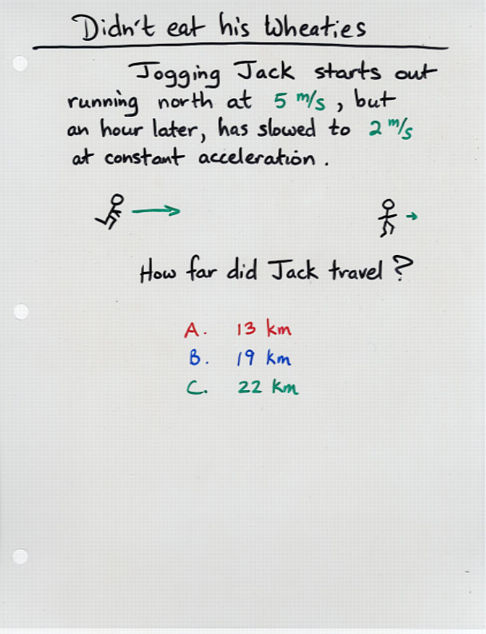 Didn't eat his Wheaties
Jogging Jack starts out
running north at 5 m/s, but
an hour later, has slowed to 2 m/s
at constant acceleration.
How far did Jack travel?
A. 13 km
B. 19 km
C. 22 km